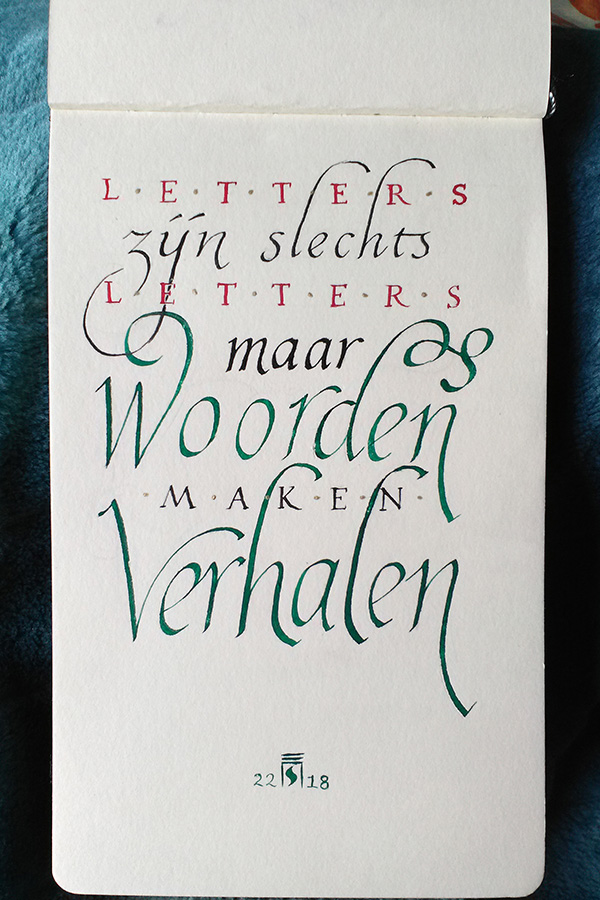 L·E·T·T·E·R·S
zijn slechts
L·E·T·T·E·R·S
maar
Woorden
·M·A·K·E·N·
Verhalen
22 S 18